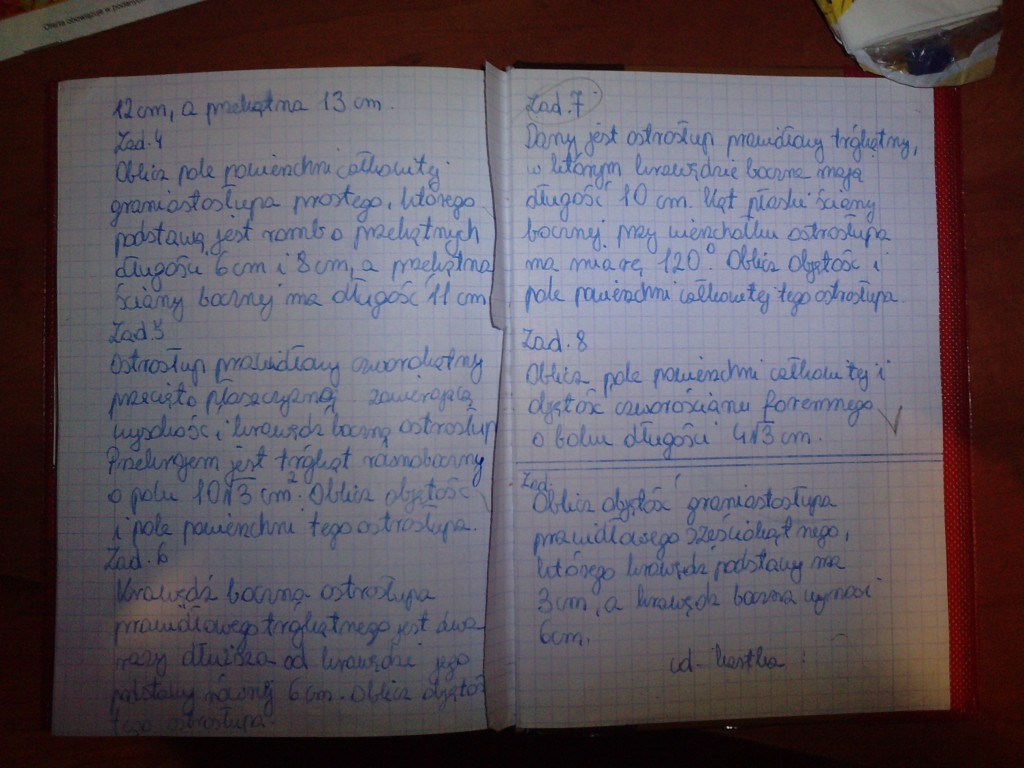 Chęta obowiązek w podanych
12cm, a przekątna 13 cm.
Zad. 4
Oblicz pole powierzchni całkowitej
graniastosłupa prostego, którego
podstawą jest romb o przekątnych
długości 6 cm i 8 cm, a przekątna
ściany bocznej ma długość 11 cm
Zad. 5
Ostrosłup prawidłowy czworokątny
przecięto płaszczyzną zawierającą
wysokość i krawędź boczną ostrosłup
Przekrojem jest trójkąt równoboczny
o polu 10√3 cm². Oblicz objętość
i pole powierzchni tego ostrosłupa.
Zad. 6
Krawędź boczna ostrosłupa
prawidłowego trójkątnego jest dwa
razy dłuższa od krawędzi jego
podstawy równej 6 cm. Oblicz objętość
tego ostrosłupa.
Zad. 7
Dany jest ostrosłup prawidłowy trójkątny,
w którym krawędzie boczne mają
długość 10 cm. Kąt płaski ściany
bocznej przy wierzchołku ostrosłupa
ma miarę 120°. Oblicz objętość i
pole powierzchni całkowitej tego ostrosłupa.
Zad. 8
Oblicz pole powierzchni całkowitej i
objętość czworościanu foremnego
o boku długości 4√3 cm.
Zad.
Oblicz objętość graniastosłupa
prawidłowego sześciokątnego,
którego krawędź podstawy ma
3 cm, a krawędź boczna wynosi
6cm.
cd. kartka